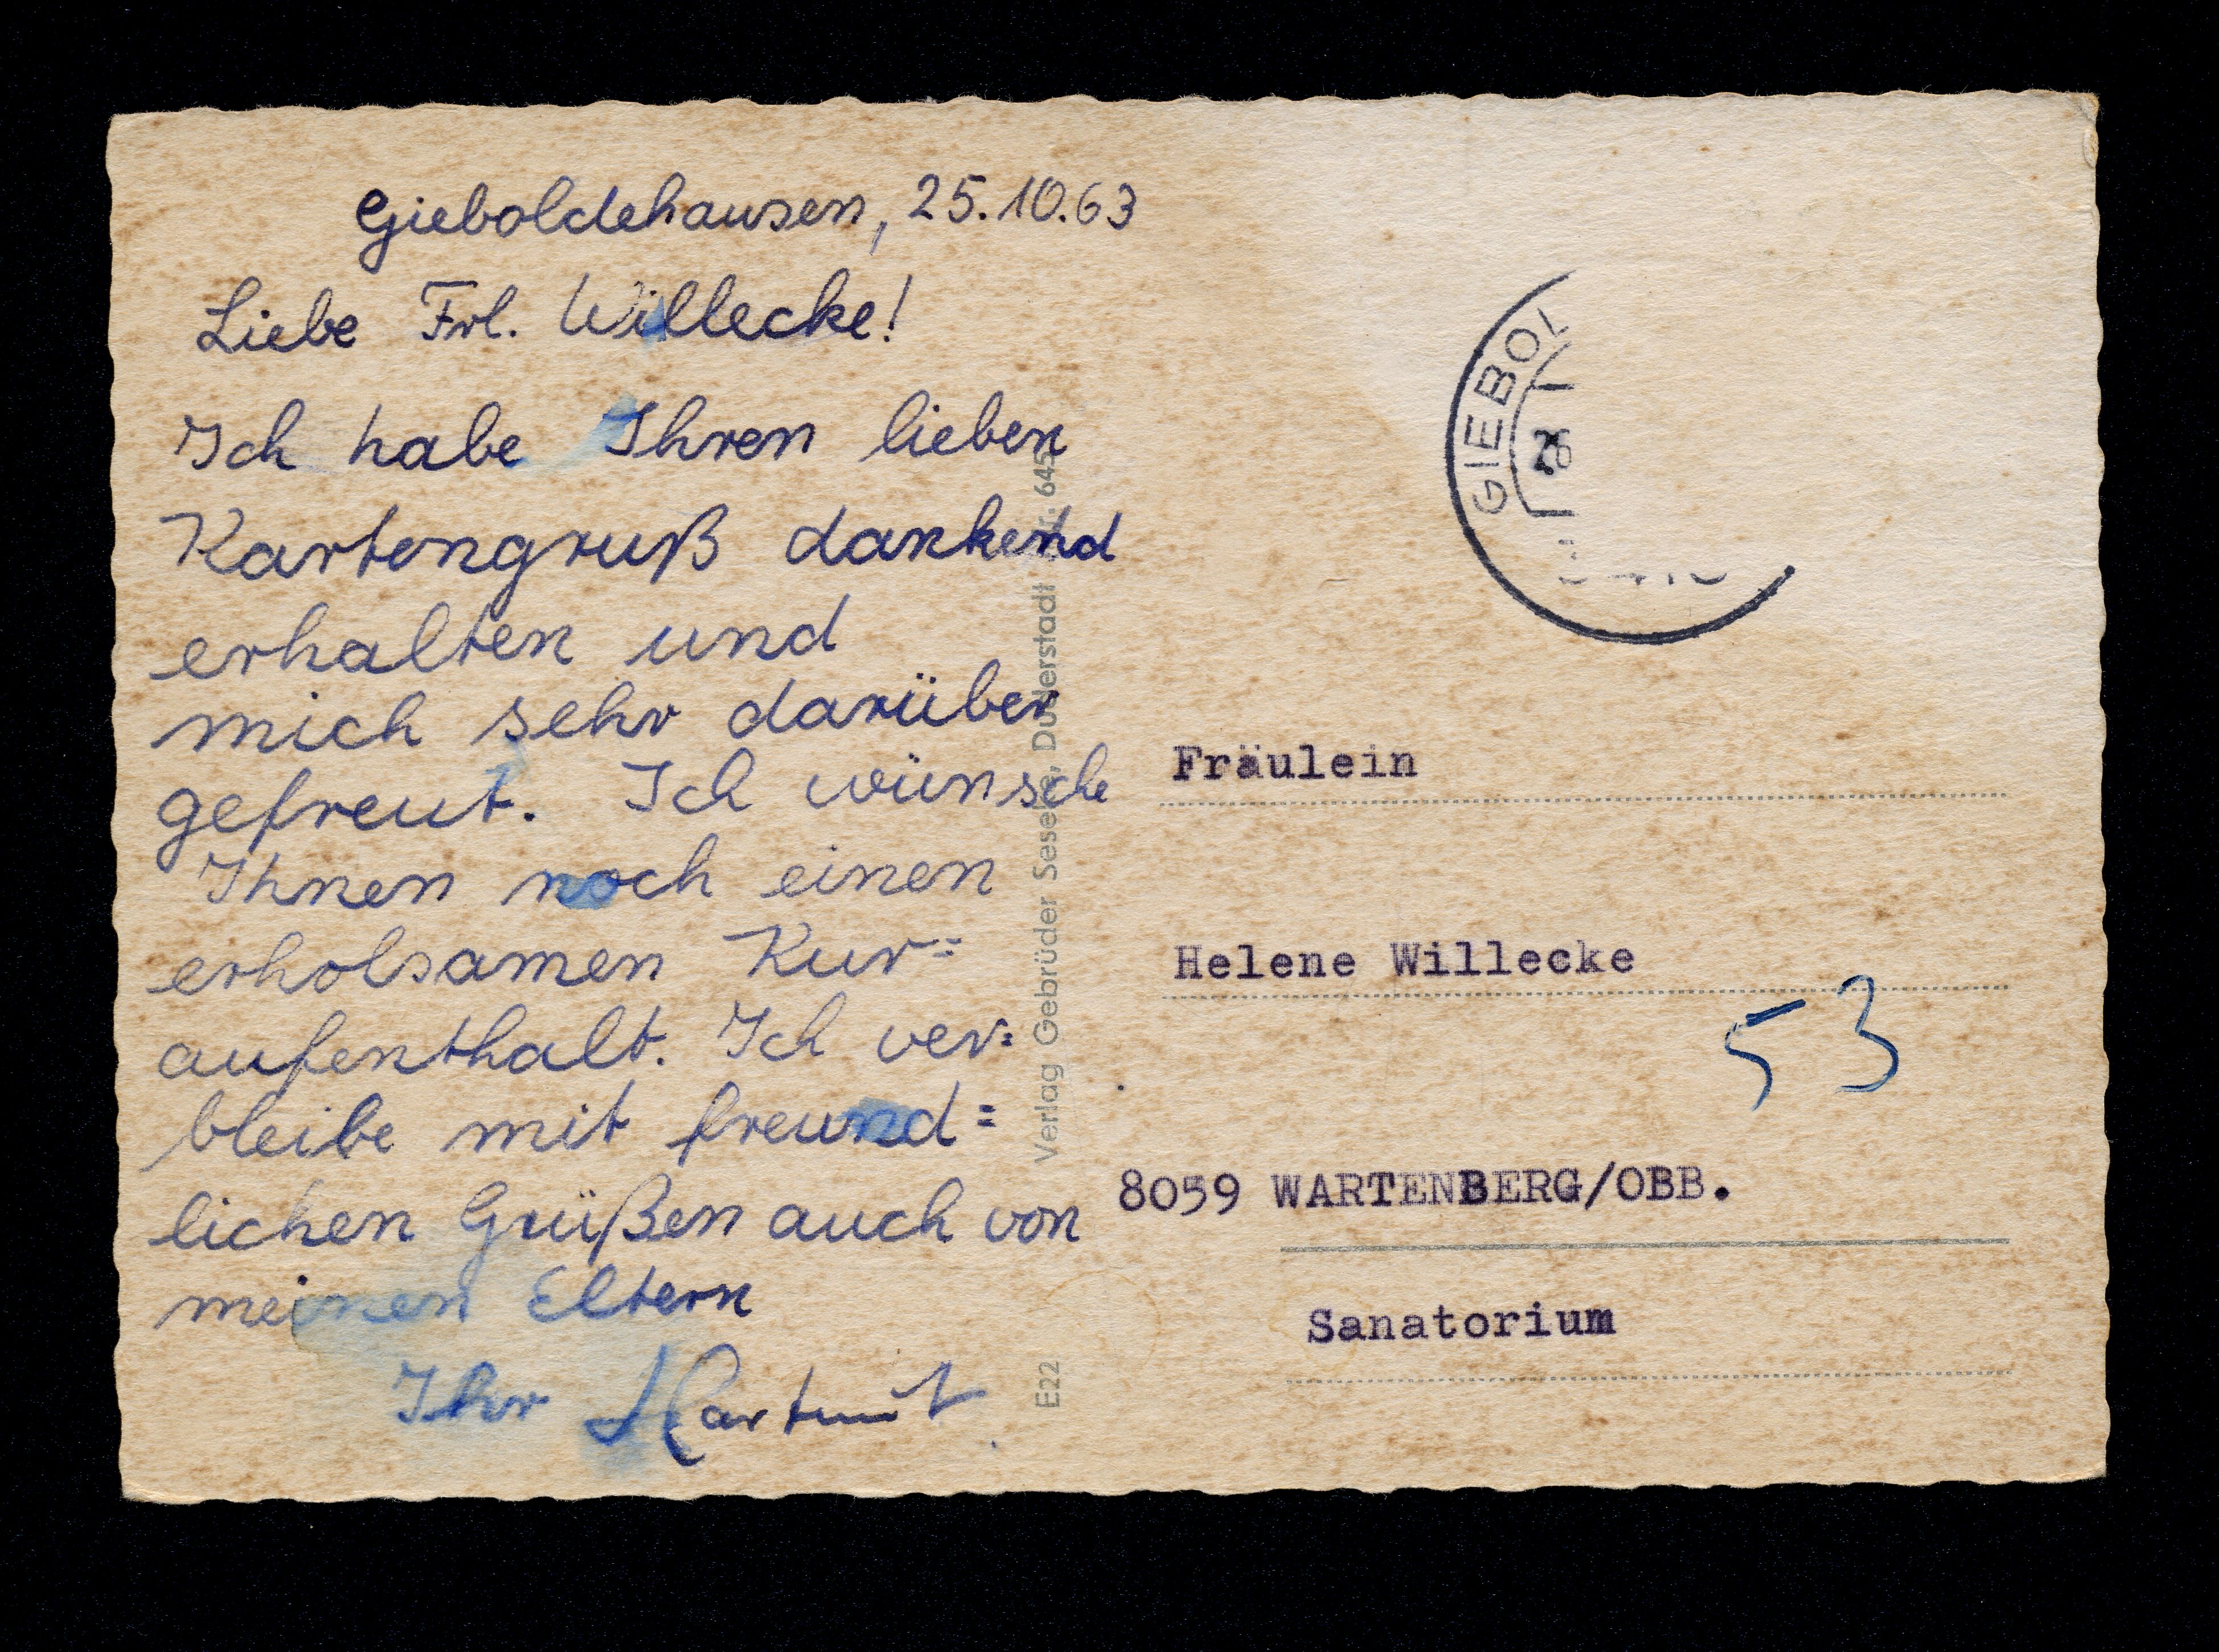 Gieboldehausen, 25.10.63
Liebe Frl. Willecke!
Ich habe Ihren lieben
Kartengruß dankend
erhalten und
mich sehr darüber
gefreut. Ich wünsche
Ihnen noch einen
erholsamen Kur=
aufenthalt. Ich ver=
bleibe mit freund=
lichen Grüßen auch von
meinen Eltern
Ihr Hartmut
E22 Verlag Gebrüder Duderstadt
GIEBOL
26
Fräulein
Helene Willecke
53
8059 WARTENBERG/OBB.
Sanatorium